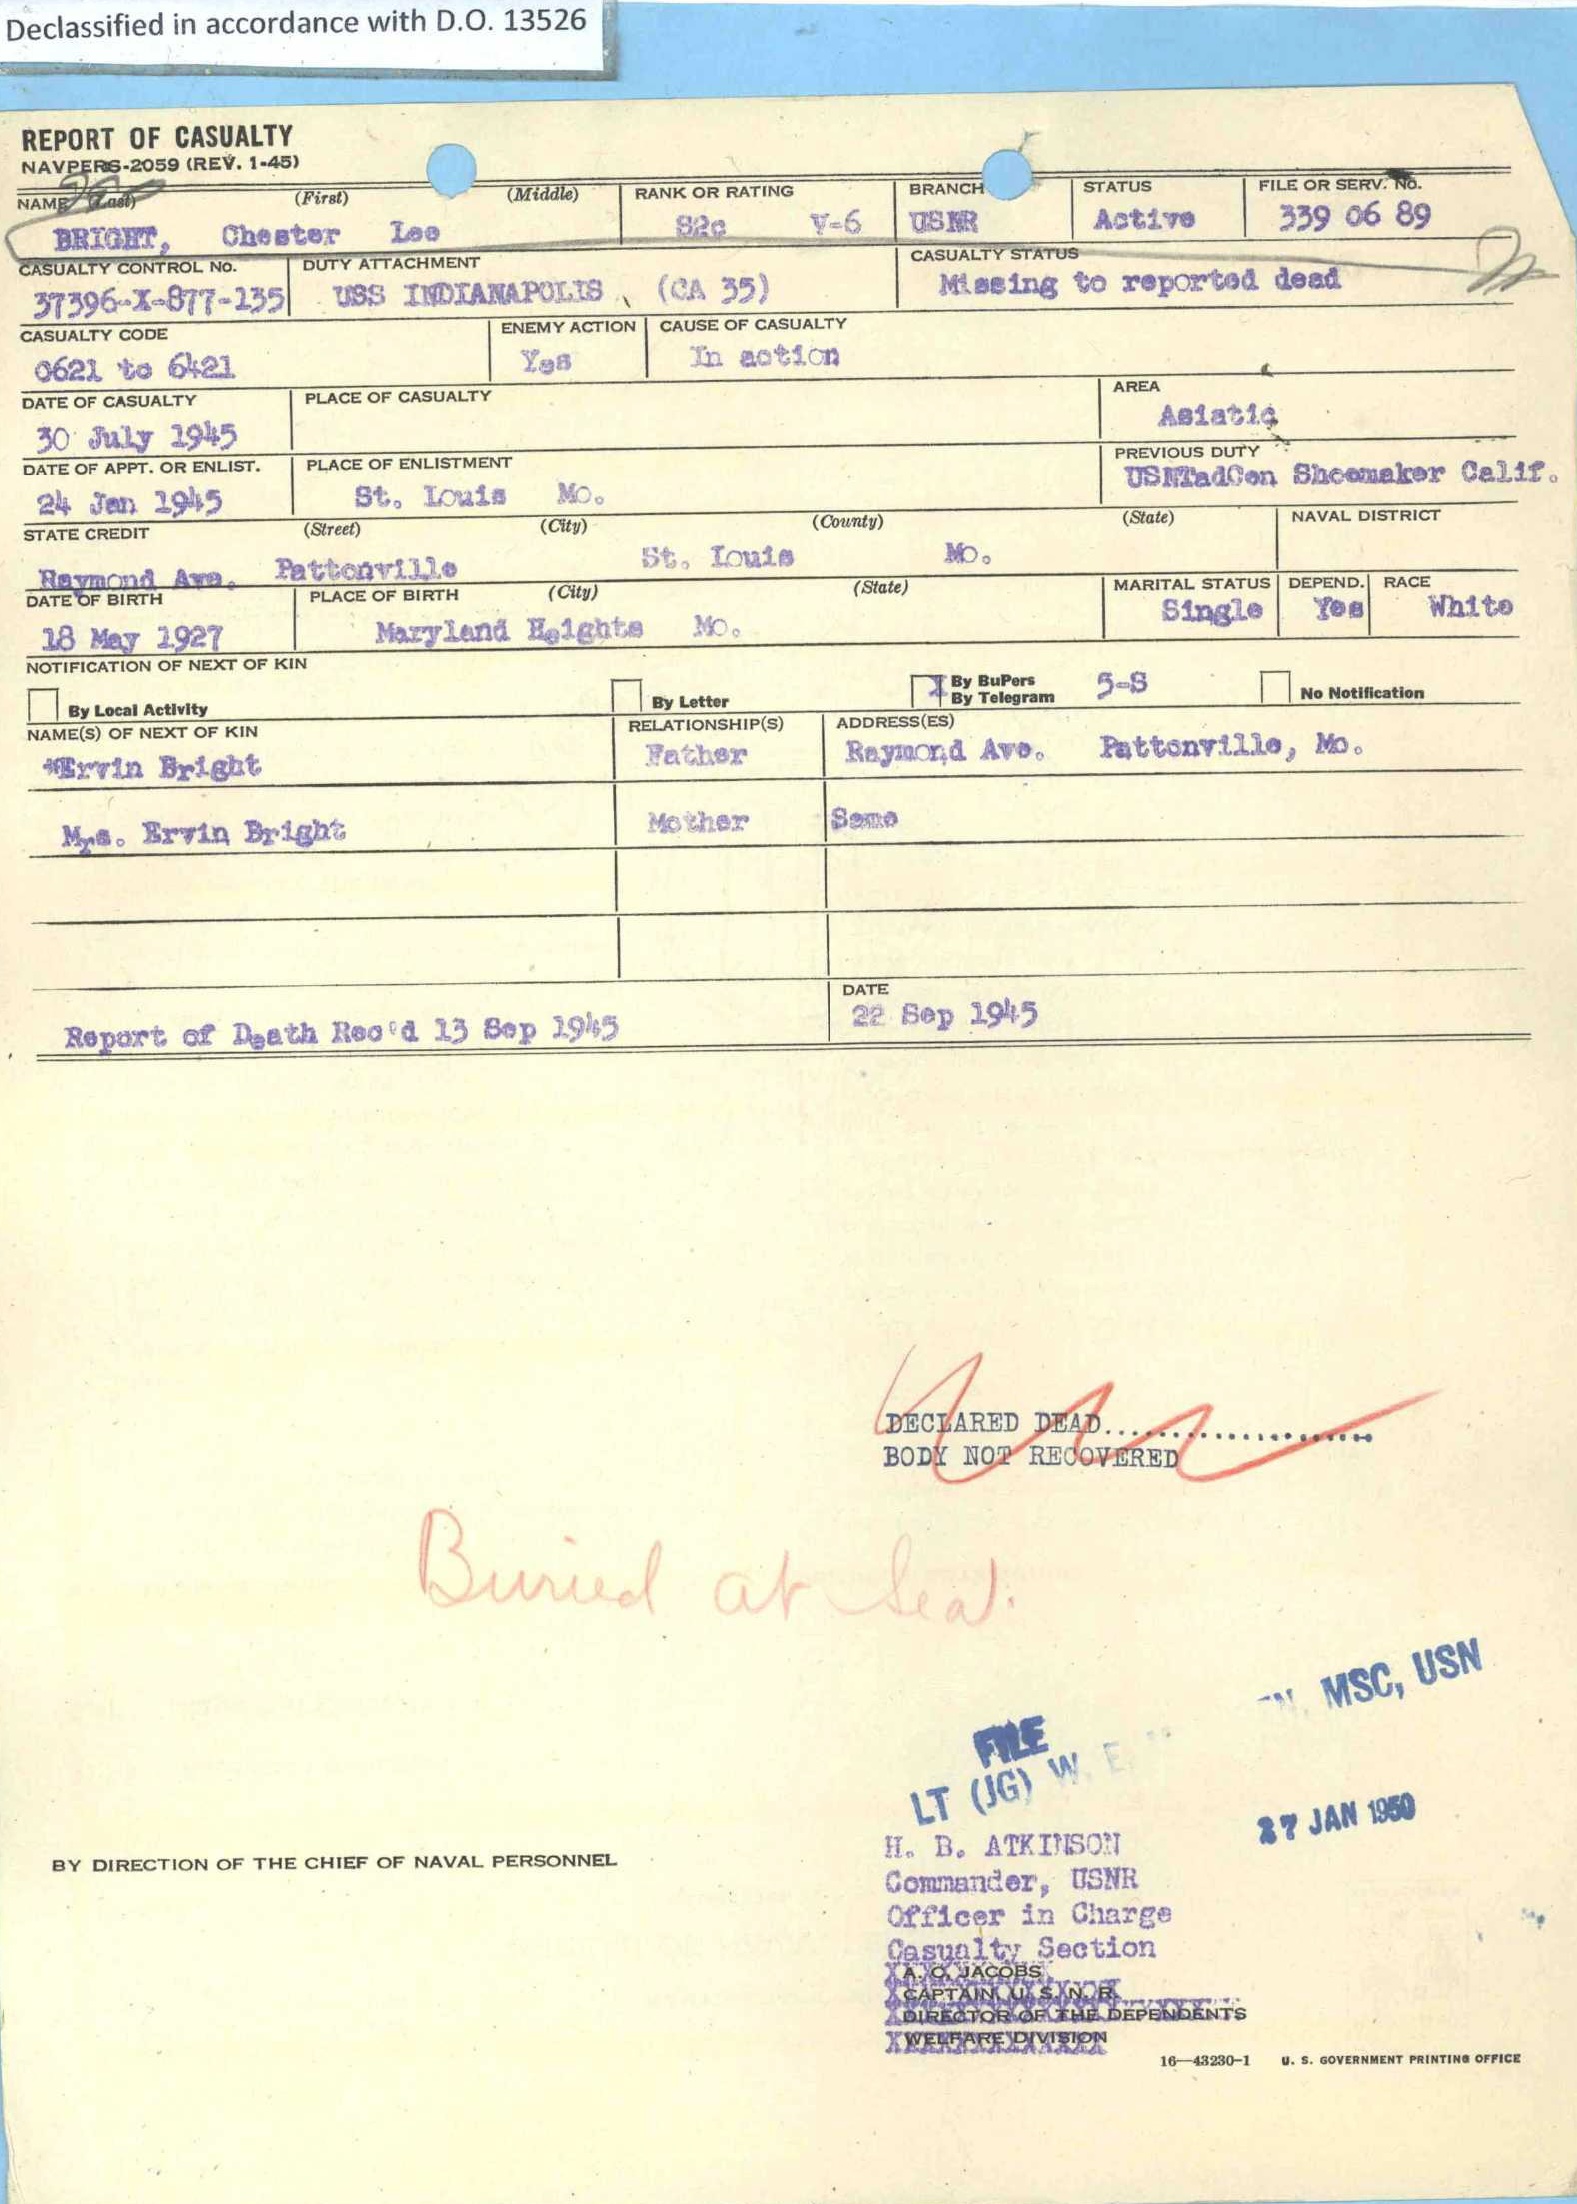 Declassified in accordance with D.O. 13526
REPORT OF CASUALTY
NAVPERS-2059 (REV. 1-45)
NAME (Last) (First) (Middle) RANK OR RATING BRANCH STATUS FILE OR SERV. No.
BRIGHT, Chester Lee S2c V-6 USNR Active 339 06 89
CASUALTY CONTROL No. DUTY ATTACHMENT CASUALTY STATUS
37396-X-877-135 USS INDIANAPOLIS (CA 35) Missing to reported dead
CASUALTY CODE ENEMY ACTION CAUSE OF CASUALTY
0621 to 6421 Yes In action
DATE OF CASUALTY PLACE OF CASUALTY AREA
30 July 1945 Asiatic
DATE OF APPT. OR ENLIST. PLACE OF ENLISTMENT PREVIOUS DUTY
24 Jan 1945 St. Louis Mo. USNTadCen Shoemaker Calif.
STATE CREDIT (Street) (City) (County) (State) NAVAL DISTRICT
Raymond Ave. Pattonville St. Louis Mo.
DATE OF BIRTH PLACE OF BIRTH (City) (State) MARITAL STATUS DEPEND. RACE
18 May 1927 Maryland Heights Mo. Single Yes White
NOTIFICATION OF NEXT OF KIN
By Local Activity By Letter X By BuPers By Telegram 5-S No Notification
NAME(S) OF NEXT OF KIN RELATIONSHIP(S) ADDRESS(ES)
*Ervin Bright Father Raymond Ave. Pattonville, Mo.
Mrs. Ervin Bright Mother Same
DATE
Report of Death Rec'd 13 Sep 1945 22 Sep 1945
DECLARED DEAD......................
BODY NOT RECOVERED
Buried at Sea.
FILE
LT (JG) W. E. MSC, USN
27 JAN 1950
BY DIRECTION OF THE CHIEF OF NAVAL PERSONNEL
H. B. ATKINSON
Commander, USNR
Officer in Charge
Casualty Section
A. C. JACOBS
CAPTAIN, U. S. N. R.
DIRECTOR OF THE DEPENDENTS
WELFARE DIVISION
16—43230-1 U. S. GOVERNMENT PRINTING OFFICE